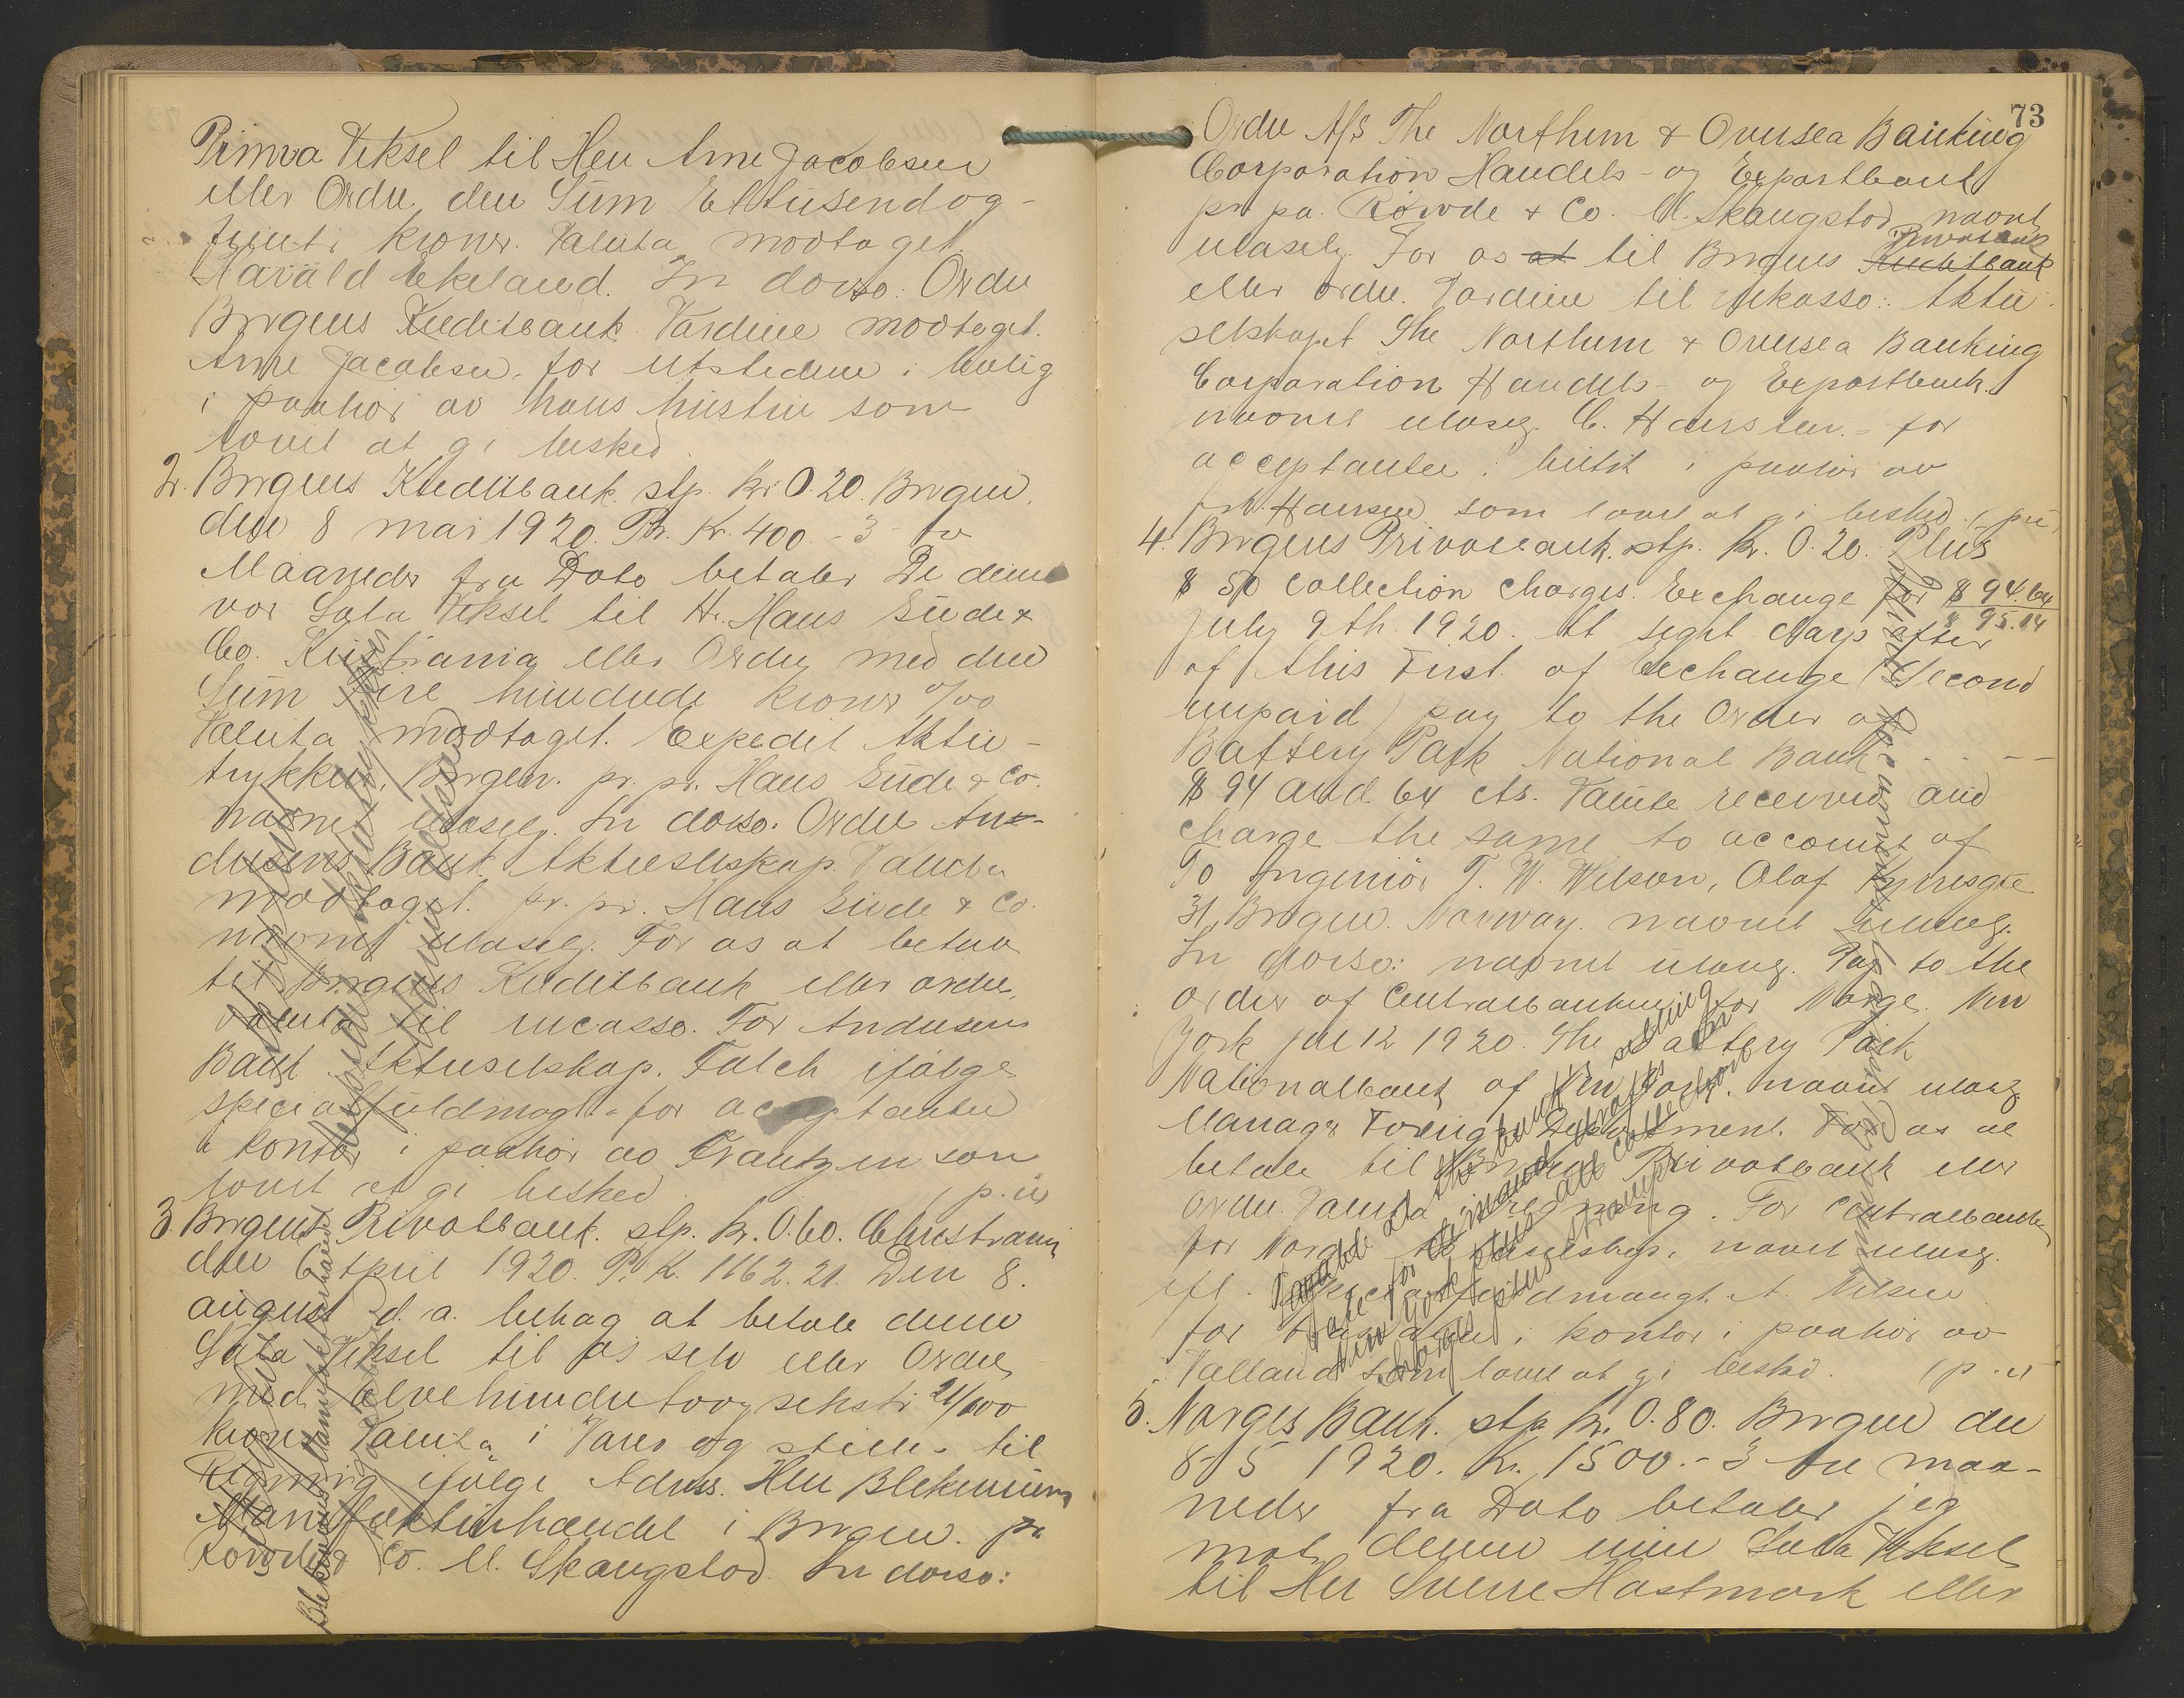 Prima Veksel til Herr Arne Jacobsen
eller Ordre den Sum Ettusendog-
femti kroner. Valuta modtaget.
Harald Ekeland. In dorso: Ordre
Bergens Kreditbank Værdien modtaget.
Arne Jacobsen. for Utstederen i bolig
i paahør av hans hustru som
lovet at gi besked.
2. Bergens Kreditbank. stp. kr. 0.20. Bergen,
den 8 mai 1920. Pr. Kr. 400.- 3 tre
Maaneder fra Dato betaler De denne
vor Sola Veksel til Hr. Hans Eide &
Co. Kristiania eller Ordre med den
Sum Fire hundrede kroner 0/00
Valuta modtaget. Expedit Aktie-
trykkeri, Bergen. pr. pr. Hans Eide & Co.
navnet ulæselig. In dorso: Ordre An-
dresens Bank Aktieselskap. Valuta
modtaget. pr. pr. Hans Eide & Co.
navnet ulæselig. For os at betale
til Bergens Kreditbank eller ordre,
Valuta til incasso. For Andresens
Bank Aktieselskap. Falch ifølge
specialfuldmagt - for acceptanten
i kontor i paahør av Frantzen som
lovet at gi besked. (p.u)
3. Bergens Privatbank. stp. kr. 0.60. Christiania
den 6 April 1920. Pr. K. 1162.21. Den 8.
august d. a. behag at betale denne
Sola Veksel til os selv eller Ordre
med elvehundretoogseksti 21/100
kroner Valuta i Varer og stilles til
Regning ifølge Advis. Herr Blekeruns
Manufakturhandel i Bergen. pr
Røwde & Co. M. Skaugstad. In dorso:
73
Ordre A/S The Northern & Oversea Banking
Corporation Handels- og Exportbank
pr. pa. Røwde & Co. M. Skaugstad navnet
ulæselig. For os at til Bergens Kreditbank
Privatbank
eller ordre. Værdien til inkasso: Aktie-
selskapet The Northern & Oversea Banking
Corporation Handels- og Exportbank.
navnet ulæselig. C. Hansten. - for
acceptanten i butik i paahør av
frk. Hansen som lovet at gi besked. (p.u)
4. Bergens Privatbank. stp. kr. 0.20. Plus
$ 50 collection charges. Exchange for $ 94.64
$ 95.14
July 9th 1920. At sight days after
of this First of Exchange (Second
unpaid) pay to the Order of
Battery Park National Bank . . . --
$ 94 and 64 cts. Value received and
charge the same to account of
To Ingeniør T. W. Wilson, Olaf Kyrresgte
31, Bergen. Norway. navnet ulæselig.
In dorso: navnet ulæselig. Pay to the
order of Centralbanken for Norge. New
York jul 12 1920. The Battery Park
Nationalbank of New York. navnet ulæselig
Manager Foreign Department. For os at
betale til Bergens Privatbank eller
ordre. Valuta i regning. For Centralbanken
for Norge Aktieselskap, navnet ulæselig.
ifl. Specialfuldmagt. A. Nilsen
for trassaten i kontor i paahør av
Valland som lovet at gi besked. (p.u)
5. Norges Bank. stp. kr. 0.80. Bergen den
8-5 1920. Kr. 1500.- 3 tre maa-
neder fra Dato betaler jeg
mot denne min Sola Veksel
til Herr Sverre Hastmark eller